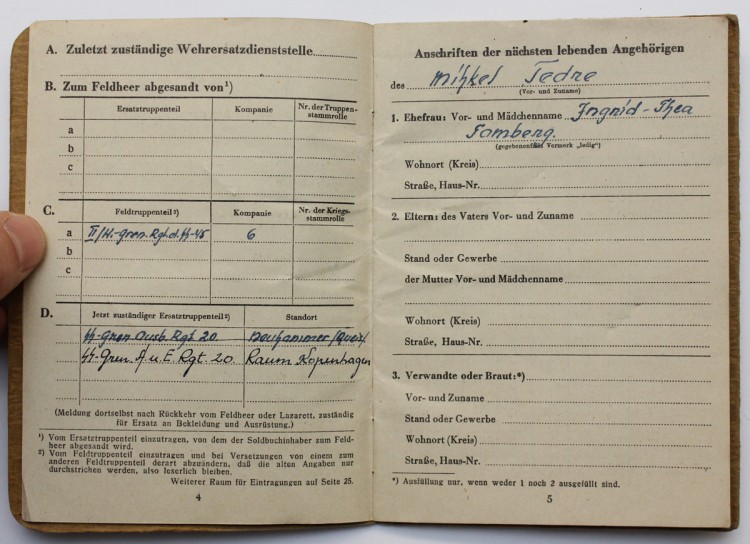 A. Zuletzt zuständige Wehrersatzdienststelle
B. Zum Feldheer abgesandt von¹)
Ersatztruppenteil Kompanie Nr. der Truppen-
stammrolle
a
b
c
C. Feldtruppenteil²) Kompanie Nr. der Kriegs-
stammrolle
a II/W.-Gren.Rgt.d.SS-45 6
b
c
D. Jetzt zuständiger Ersatztruppenteil²) Standort
SS-Gren.Ausb.Rgt 20. Neuhammer
SS-Gren. A u. E Rgt. 20. Raum Kopenhagen
(Meldung dortselbst nach Rückkehr vom Feldheer oder Lazarett, zuständig
für Ersatz an Bekleidung und Ausrüstung.)
¹) Vom Ersatztruppenteil einzutragen, von dem der Soldbuchinhaber zum Feld-
heer abgesandt wird.
²) Vom Feldtruppenteil einzutragen und bei Versetzungen von einem zum
anderen Feldtruppenteil derart abzuändern, daß die alten Angaben nur
durchstrichen werden, also leserlich bleiben.
Weiterer Raum für Eintragungen auf Seite 25.
4
Anschriften der nächsten lebenden Angehörigen
des Mihkel Tedre
(Vor- und Zuname)
1. Ehefrau: Vor- und Mädchenname Ingrid-Thea
Tomberg
(gegebenenfalls Vermerk „ledig")
Wohnort (Kreis)
Straße, Haus-Nr.
2. Eltern: des Vaters Vor- und Zuname
Stand oder Gewerbe
der Mutter Vor- und Mädchenname
Wohnort (Kreis)
Straße, Haus-Nr.
3. Verwandte oder Braut:*)
Vor- und Zuname
Stand oder Gewerbe
Wohnort (Kreis)
Straße, Haus-Nr.
*) Ausfüllung nur, wenn weder 1 noch 2 ausgefüllt sind.
5